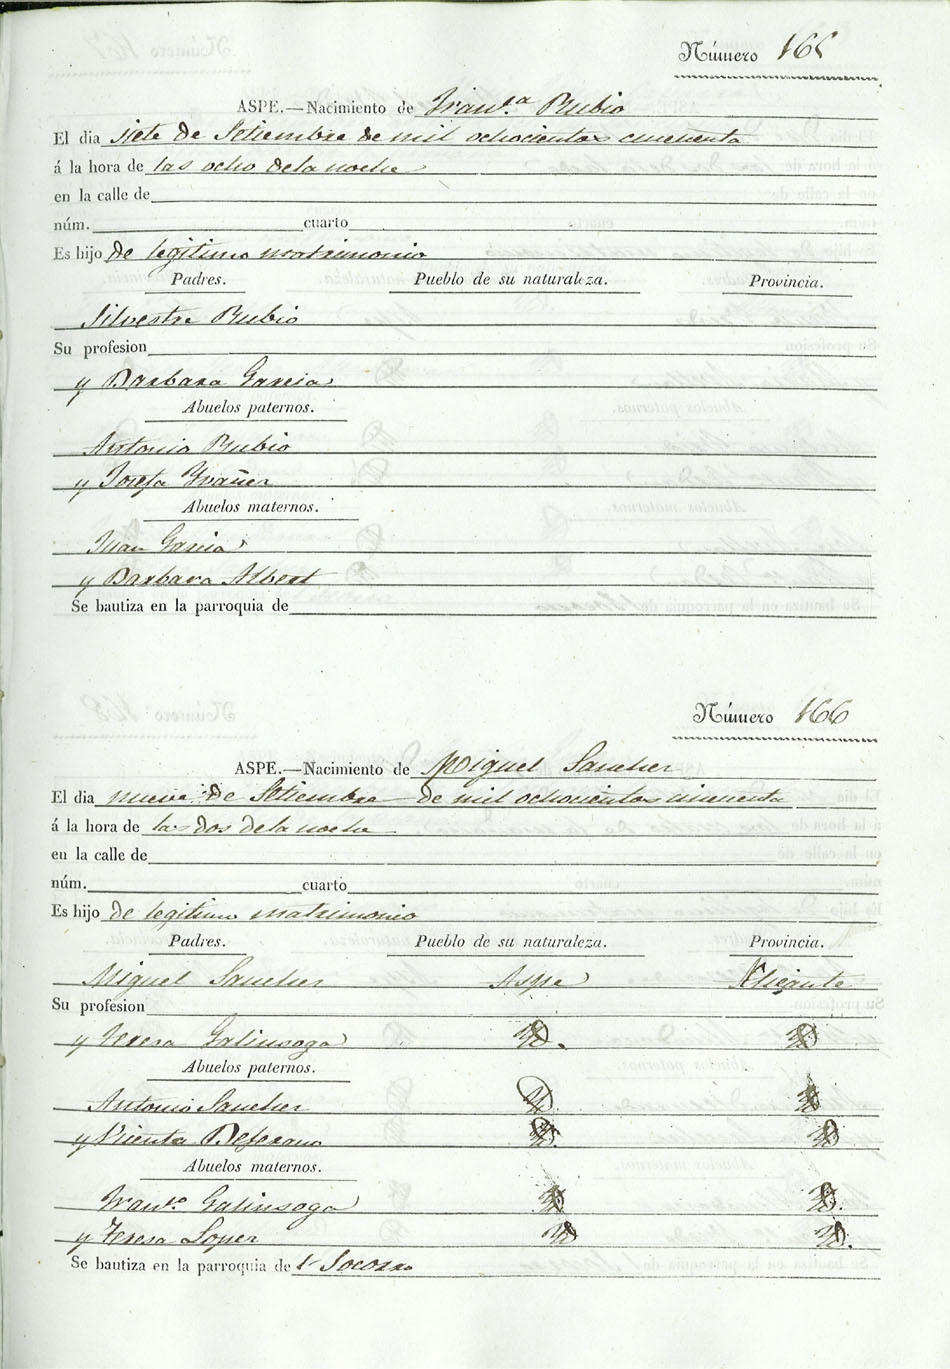 Número 165
ASPE.—Nacimiento de Fran.ca Rubio
El dia siete de Setiembre de mil ochocientos cincuenta
á la hora de las ocho dela noche
en la calle de
núm. cuarto
Es hijo de legitimo matrimonio
Padres. Pueblo de su naturaleza. Provincia.
Silvestre Rubio
Su profesion
y Barbara Garcia
Abuelos paternos.
Antonio Rubio
y Josefa Yvañez
Abuelos maternos.
Juan Garcia
y Barbara Albert
Se bautiza en la parroquia de
Número 166
ASPE.—Nacimiento de Miguel Sanchez
El dia nueve de Setiembre de mil ochocientos cincuenta
á la hora de las dos dela noche
en la calle de
núm. cuarto
Es hijo de legitimo matrimonio
Padres. Pueblo de su naturaleza. Provincia.
Miguel Sanchez Aspe Alicante
Su profesion
y Teresa Galinsoga Yd. Yd.
Abuelos paternos.
Antonio Sanchez Yd. Yd.
y Vicenta Yd. Yd.
Abuelos maternos.
Fran.co Galinsoga Yd. Yd.
y Teresa Soper Yd. Yd.
Se bautiza en la parroquia de l Socorro